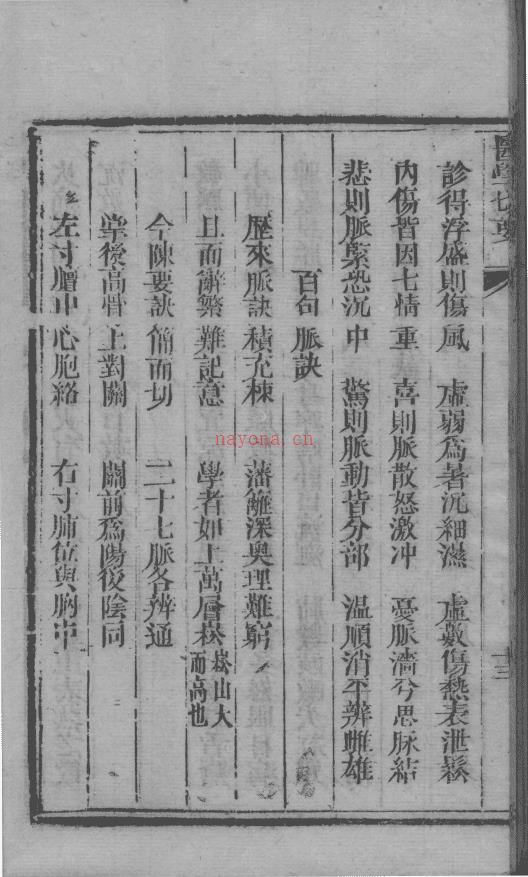 醫學切要
十三
診得浮盛則傷風　虛弱爲暑沉細濕　虛數傷熱表泄鬆
內傷皆因七情重　喜則脈散怒激冲　憂脈濇兮思脉結
悲則脈緊恐沉中　驚則脈動皆分部　温順消平辨雌雄
百句脈訣
歷來脈訣積充棟　藩籬深奥理難窮
且而辭繁難記憶　學者如上萬層崧崧山大而高也
今陳要訣簡而切　二十七脈各辨通
掌後高骨上對關　關前爲陽後陰同
左寸膻中心胞絡　右寸肺位與胸中
nayona.cn